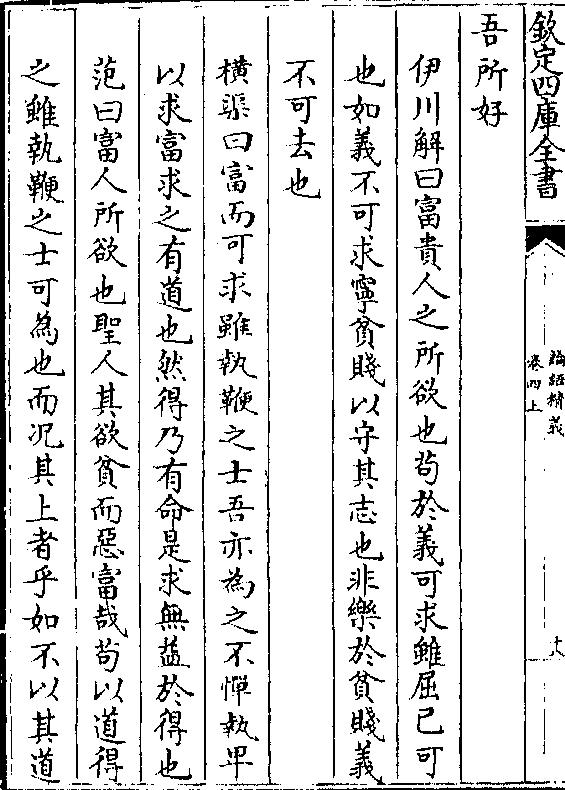 欽定四庫全書
論語精義
卷四上
十八
吾所好
伊川解曰富貴人之所欲也苟於義可求雖屈己可
也如義不可求寧貧賤以守其志也非樂於貧賤義
不可去也
橫渠曰富而可求雖執鞭之士吾亦為之不憚執卑
以求富求之有道也然得乃有命是求無益於得也
范曰富人所欲也聖人其欲貧而惡富哉苟以道得
之雖執鞭之士可為也而况其上者乎如不以其道